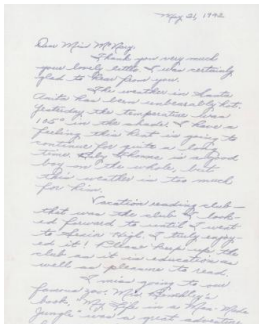 May 21, 1942
Dear Miss McNary,
Thank you very much
your lovely letter. I was certainly
glad to hear from you.
The weather in Santa
Anita has been unbearably hot.
Yesterday the temperature was
105° in the shade! I have a
feeling this heat is going to
continue for quite a long
time. Baby Thomas is a good
boy on the whole, but
this weather is too much
for him.
Vacation reading club —
that was the club I look-
ed forward to until I went
to Junior High. I truly enjoy-
ed it! Please keep up the
club as it is education as
well as pleasure to read.
I miss going to our
famous zoo. Mrs.
book, "My Wife in a Man-Made
Jungle" was a great